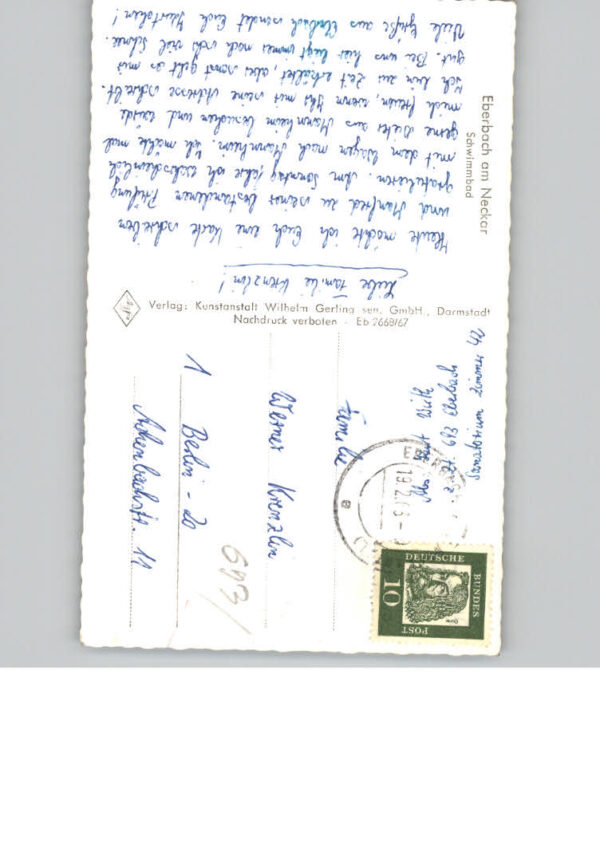 Eberbach am Neckar
Schwimmbad
Liebe Familie Krenzlin!
Heute möchte ich Euch eine Karte schreiben
und Manfred zu seiner bestandenen Prüfung
gratulieren. Am Sonntag fahre ich wahrscheinlich
mit dem Wagen nach Mannheim. Ich möchte mal
gerne Dieter aus Mannheim besuchen und würde
mich freuen, wenn Ihr mir seine Adresse schreibt.
Ich bin zur Zeit erkältet, aber sonst geht es mir
gut. Bei uns hier liegt immer noch sehr viel Schnee.
Viele Grüße aus Eberbach sendet Euch
Verlag: Kunstanstalt Wilhelm Gerling sen. GmbH., Darmstadt
Nachdruck verboten · Eb 2668/67
693 Eberbach
Sanatorium Zimmer 24
19.2.
DEUTSCHE
BUNDES
POST
10
Familie
Werner Krenzlin
1 Berlin - 20
11
693/